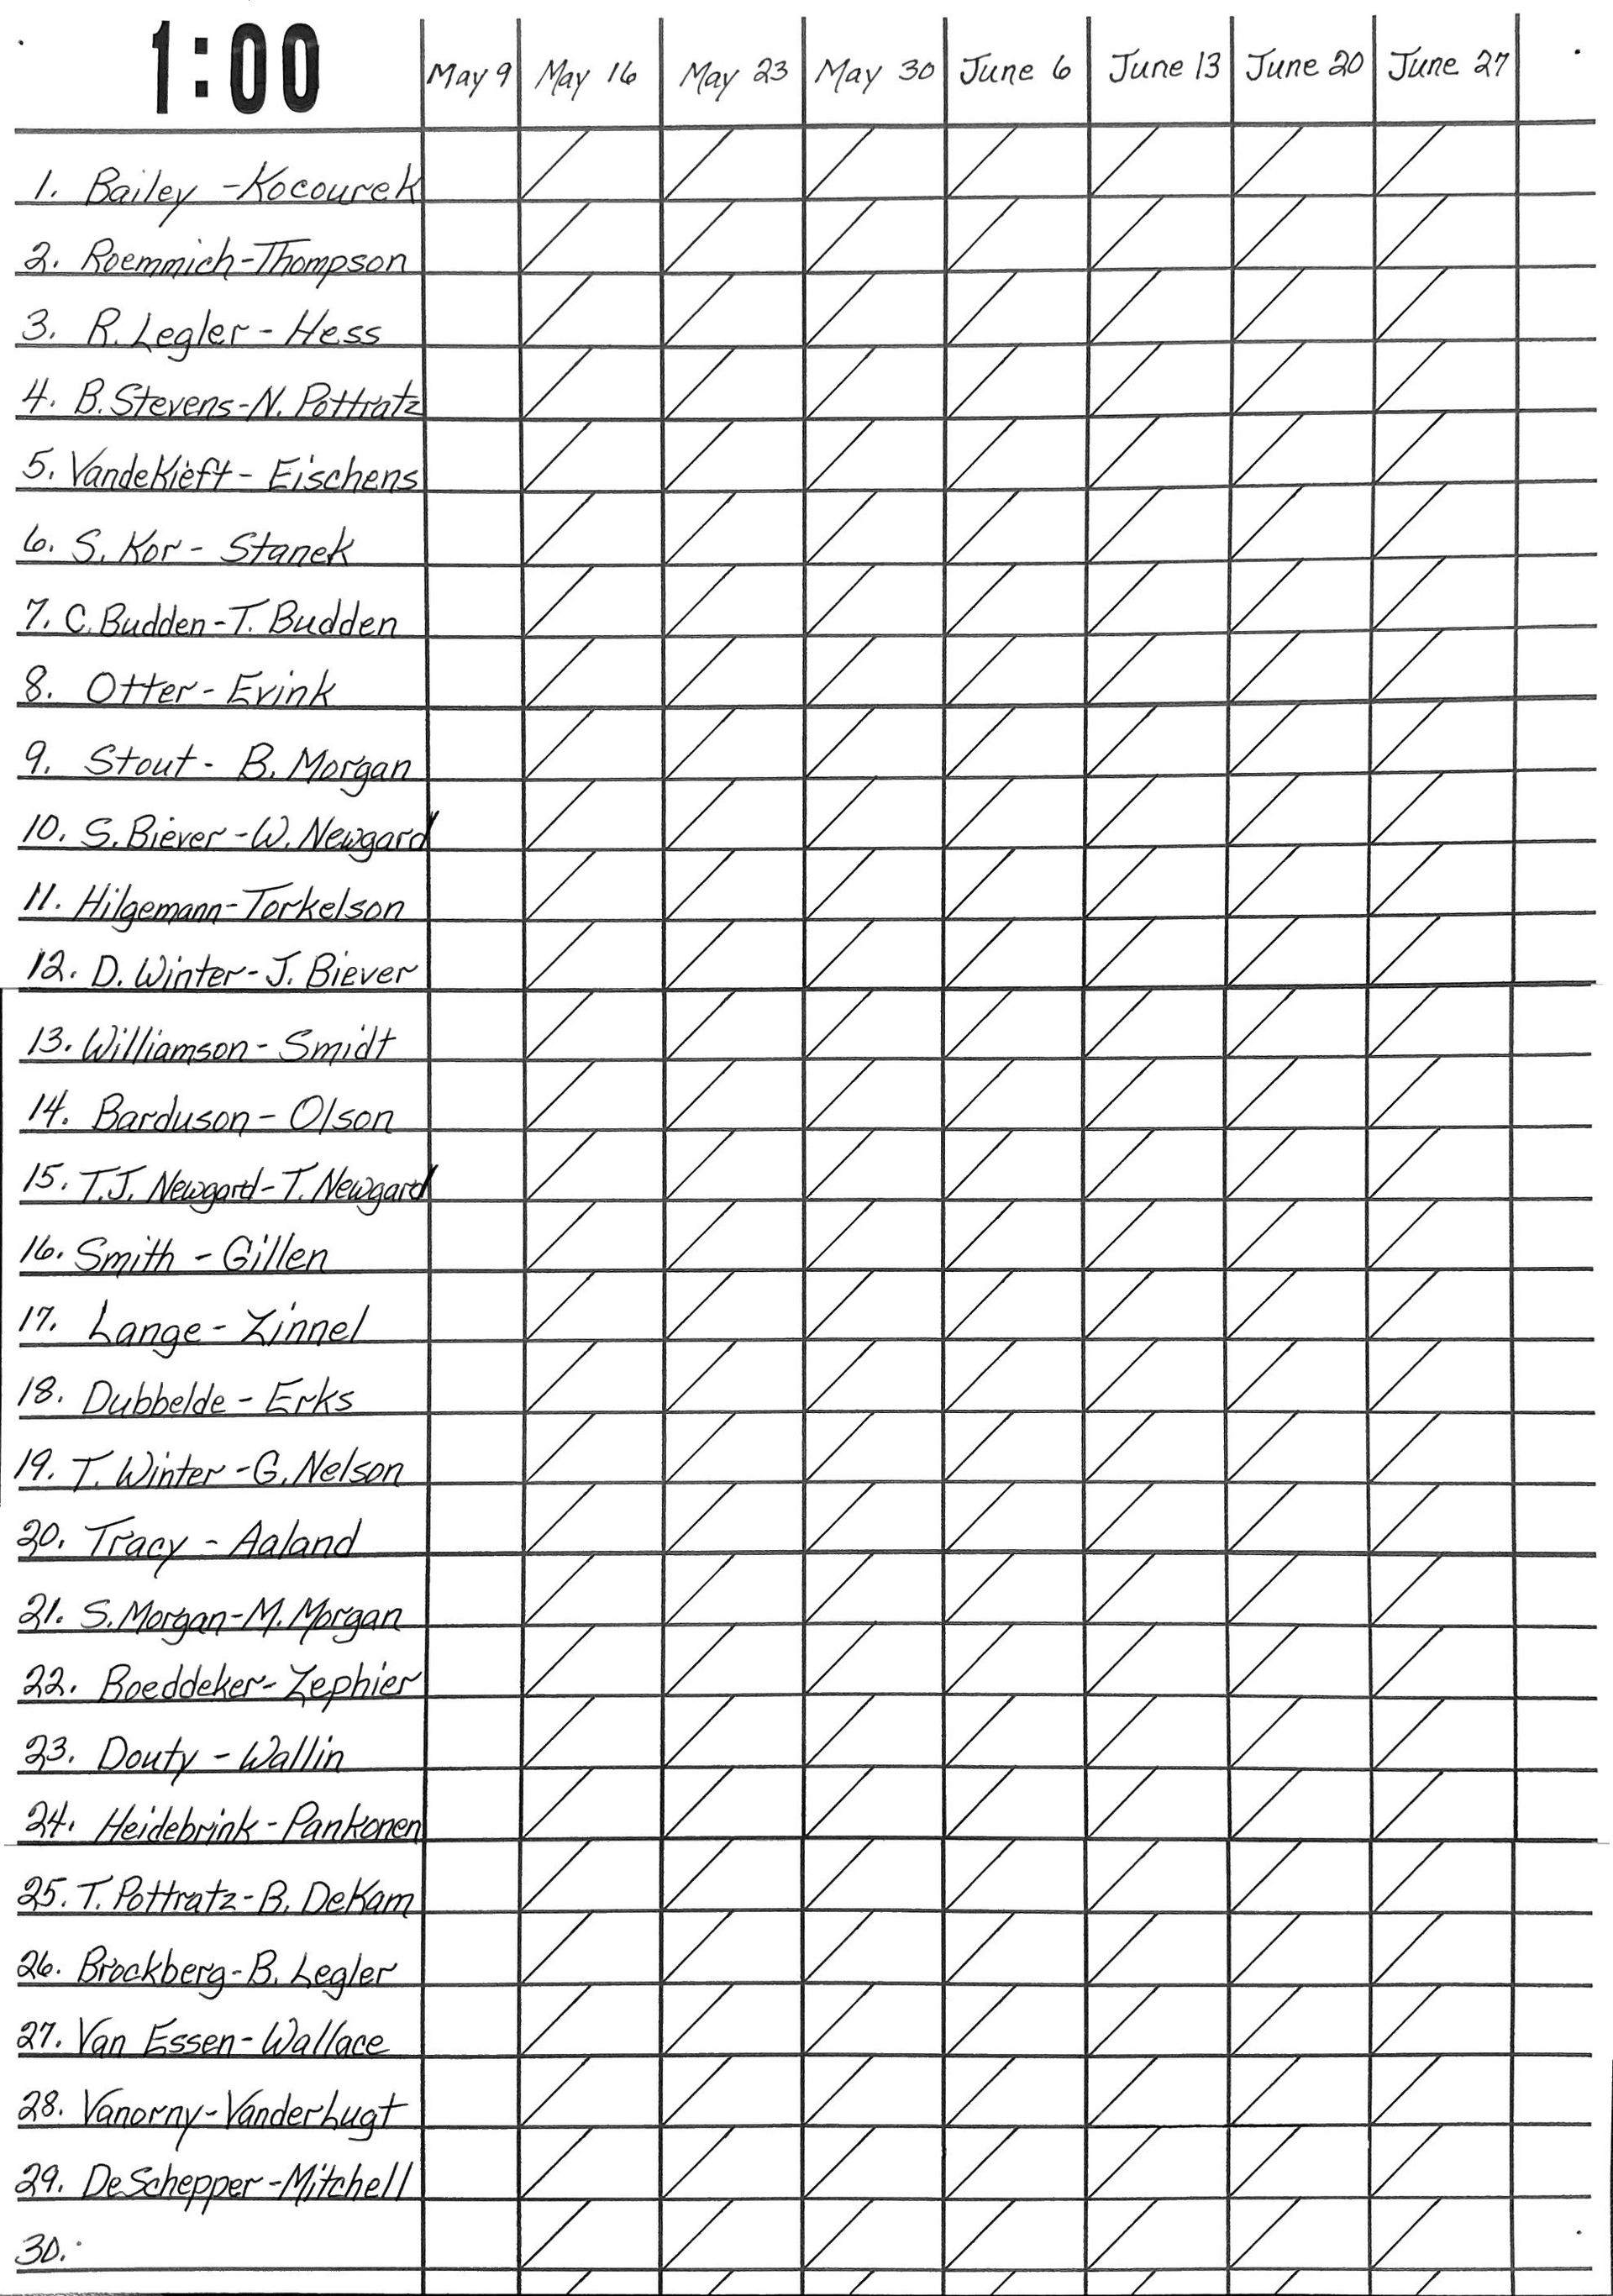 1:00 May 9 May 16 May 23 May 30 June 6 June 13 June 20 June 27
1. Bailey - Kocourek
2. Roemmich-Thompson
3. R. Legler - Hess
4. B. Stevens-N. Pottratz
5. VandeKieft - Eischens
6. S. Kor - Stanek
7. C. Budden-T. Budden
8. Otter - Evink
9. Stout - B. Morgan
10. S. Biever - W. Newgard
11. Hilgemann-Torkelson
12. D. Winter-J. Biever
13. Williamson - Smidt
14. Barduson - Olson
15. T.J. Newgard-T. Newgard
16. Smith - Gillen
17. Lange - Zinnel
18. Dubbelde - Erks
19. T. Winter - G. Nelson
20. Tracy - Aaland
21. S. Morgan-M. Morgan
22. Boeddeker- Zephier
23. Douty - Wallin
24. Heidebrink - Pankonen
25. T. Pottratz-B. DeKam
26. Brockberg-B. Legler
27. Van Essen-Wallace
28. Vanorny-VanderLugt
29. DeSchepper-Mitchell
30.